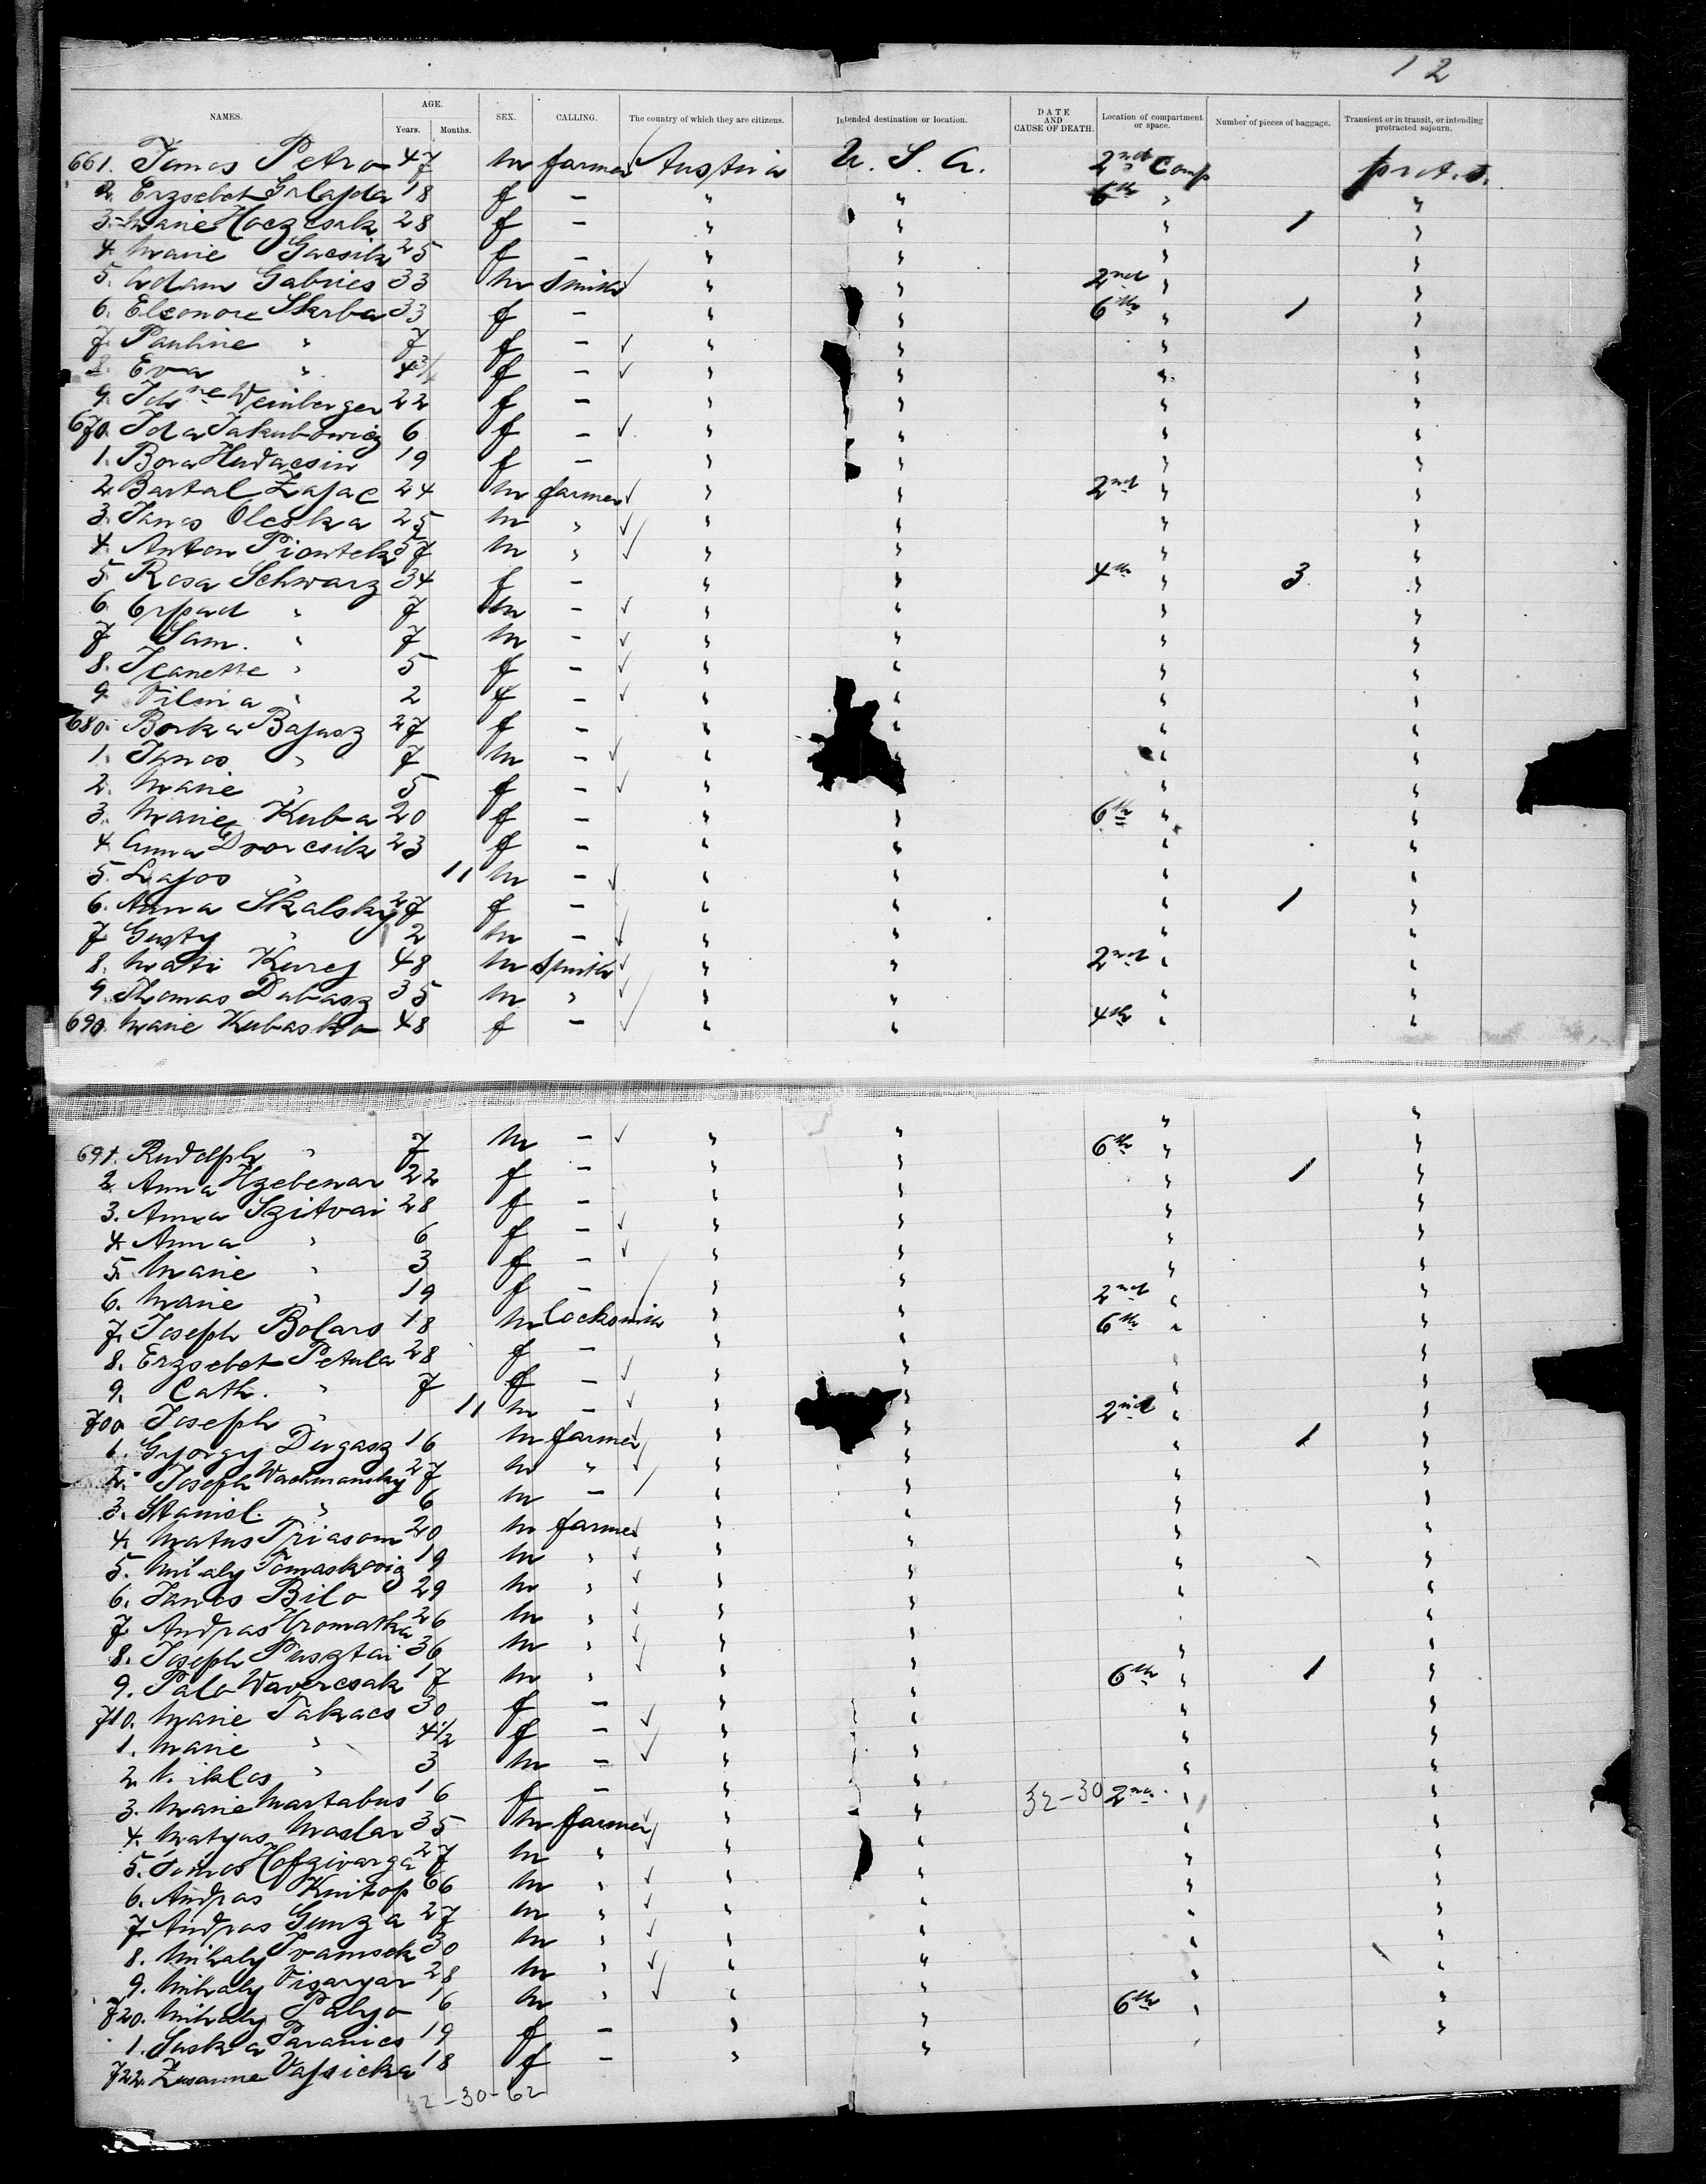 12
NAMES. AGE. Years. Months. SEX. CALLING. The country of which they are citizens. Intended destination or location. DATE AND CAUSE OF DEATH. Location of compartment or space. Number of pieces of baggage. Transient or in transit, or intending protracted sojourn.
661. Janos Petro 47 m farmer Austria U. S. A. 2nd Comp prot. s.
2. Erzsebet Galajda 18 f — " " 6th " "
3. Marie Koczcsak 28 f — " " " 1 "
4. Marie Gacsik 25 f — " " " "
5. Adam Gabries 33 m smith " " 2nd " "
6. Eleonore Skrba 33 f — " " 6th " 1 "
7. Pauline " 7 f — " " " "
8. Eva " 4 3/4 f — " " " "
9. Weinberger 22 f — " " " "
670. Ida Jakubowicz 6 f — " " " "
1. Bora Hudacsin 19 f — " " " "
2. Bartal Zajac 24 m farmer " " 2nd " "
3. Janos Oleska 25 m " " " " "
4. Anton Piontek 57 m " " " " "
5. Rosa Schwarz 34 f — " " 4th " 3 "
6. Arpad " 7 m — " " " "
7. Sam. " 7 m — " " " "
8. Jeanette " 5 f — " " " "
9. Vilma " 2 f — " " " "
680. Borka Bajusz 27 f — " " " "
1. Janos " 7 m — " " " "
2. Marie " 5 f — " " " "
3. Marie Kuba 20 f — " " 6th " "
4. Anna Dvorcsik 23 f — " " " "
5. Lajos " 11 m — " " " "
6. Anna Skalsky 27 f — " " " 1 "
7. Gusty " 2 m — " " " "
8. Mati Kurej 48 m smith " " 2nd " "
9. Thomas Dabasz 35 m " " " " "
690. Marie Kubasko 48 f — " " 4th " "
691. Rudolph " 7 m — " " " "
2. Anna Hzebenar 22 f — " " 6th " "
3. Anna Szitvai 28 f — " " " 1 "
4. Anna " 6 f — " " " "
5. Marie " 3 f — " " " "
6. Marie " 19 f — " " " "
7. Joseph Bolars 18 m locksmith " " 2nd " "
8. Erzsebet Petula 28 f — " " 6th " "
9. Cath. " 7 f — " " " "
700. Joseph " 11 m — " " " "
1. Gyorgy Dugasz 16 m farmer " " 2nd " "
2. Joseph Wachmansky 27 m " " " " 1 "
3. Stanisl. " 6 m — " " " "
4. Matus Triasom 20 m farmer " " " "
5. Mihaly Tomaskovig 19 m " " " " "
6. Janos Bilo 29 m " " " " "
7. Andras Hromatka 26 m " " " " "
8. Joseph Pusztai 36 m " " " " "
9. Palo Wavercsak 17 m " " " " "
710. Marie Takacs 30 f — " " 6th " 1 "
1. Marie " 4 1/2 f — " " " "
2. Miklos " 3 m — " " " "
3. Marie Martabus 16 f — " " " "
4. Matyas Maslar 35 m farmer " " 32-30 2nd " "
5. Janos 27 m " " " " "
6. Andras Knitop 66 m " " " " "
7. Andras Gunza 27 m " " " " "
8. Mihaly Ivamsek 30 m " " " " "
9. Mihaly Visaryar 28 m " " " " "
720. Mihaly Palyo 16 m " " " " "
1. Suska Paranics 19 f — " " 6th " "
722. Zusanne Vajsicka 18 f — " " "
32-30-62